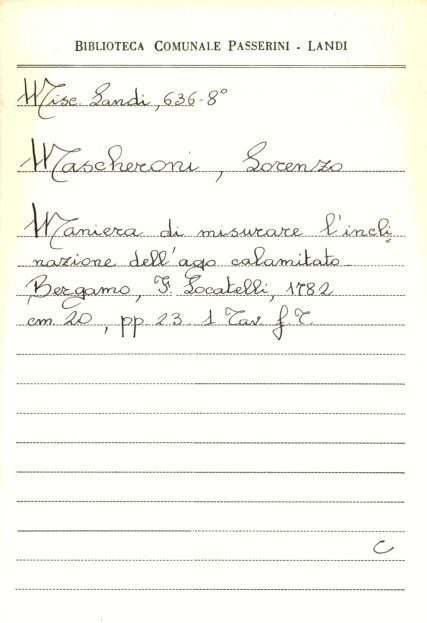 BIBLIOTECA COMUNALE PASSERINI - LANDI
Misc. Landi, 636-8°
Mascheroni, Lorenzo
Maniera di misurare l'incli
nazione dell'ago calamitato
Bergamo, F. Locatelli, 1782
cm 20, pp 23. 1 Tav. f.T.
C